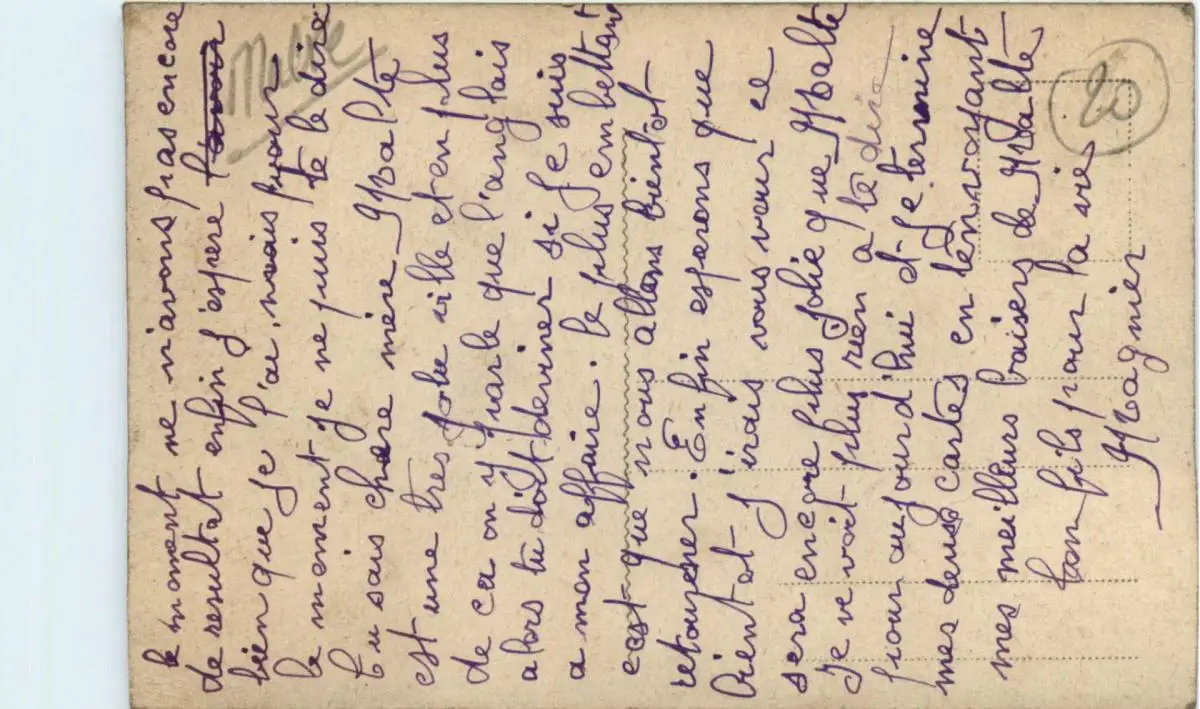 le moment ne n'avons pas encore
de resultat enfin j'espere
bien que je l'ai, mais pour
le moment je ne puis te le dire
tu sais chere mère Malte
est une tres jolie ville et en plus
de ca on y parle que l'anglais
alors tu doit deviner si je suis
a mon affaire. le plus embettant
c'est que nous allons bientôt
retourner. Enfin esperons que
bientot j'irais vous voir ce
sera encore plus jolie que Malte
Je ne voit plus rien a te dire
pour aujourd'hui et je termine
mes deux cartes en t'envoyant
mes meilleurs baisers de Malte
ton fils pour la vie
Magnier
Malte
20